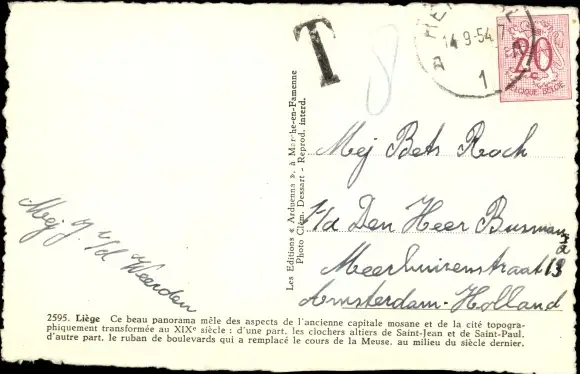 T
14-9-54
1
20
c
BELGIQUE-BELGIË
8
Mej Bets Rock
p/a Den Heer Busman
Meerhuizenstraat 13
Amsterdam-Holland
Mej J. v/d Weerden
Les Editions « Arduenna », à Marche-en-Famenne
Photo Clém. Dessart - Reprod. interd.
2595. Liège Ce beau panorama mêle des aspects de l'ancienne capitale mosane et de la cité topogra-
phiquement transformée au XIXe siècle : d'une part, les clochers altiers de Saint-Jean et de Saint-Paul,
d'autre part, le ruban de boulevards qui a remplacé le cours de la Meuse, au milieu du siècle dernier.